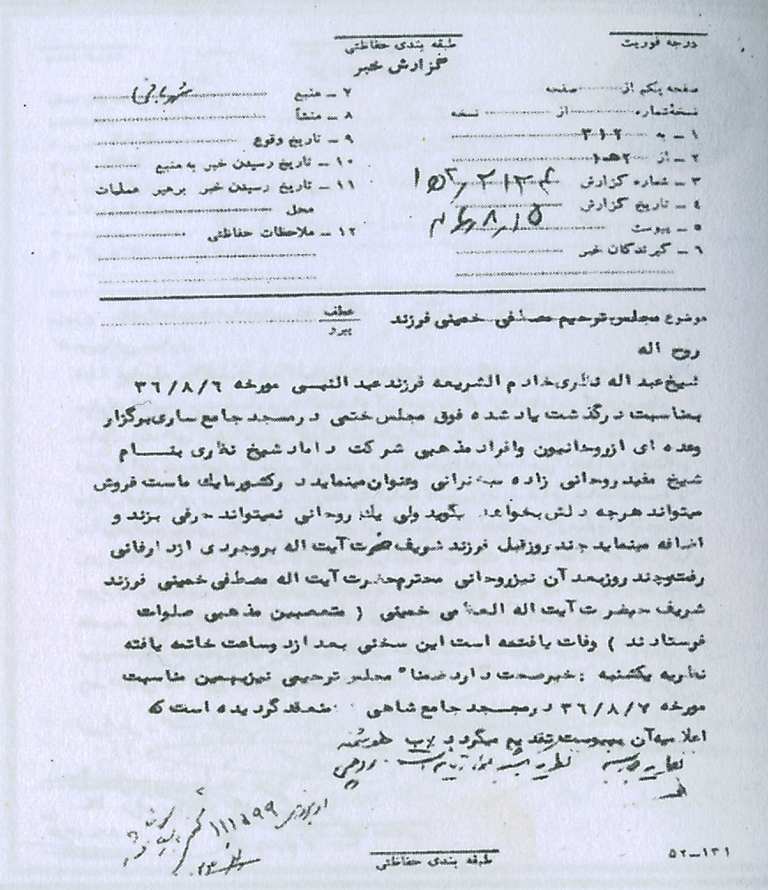 درجه فوریت
طبقه بندی حفاظتی
گزارش خبر
صفحه یکم از صفحه
نسخه شماره از نسخه
۱ ـ به ۳۱۲
۲ ـ از ۱۰ه۲
۳ ـ شماره گزارش
۴ ـ تاریخ گزارش
۵ ـ پیوست
۶ ـ گیرندگان خبر
۷ ـ منبع
۸ ـ منشأ
۹ ـ تاریخ وقوع
۱۰ ـ تاریخ رسیدن خبر به منبع
۱۱ ـ تاریخ رسیدن خبر برهبر عملیات
محل
۱۲ ـ ملاحظات حفاظتی
موضوع مجلس ترحیم مصطفی خمینی فرزند
روح اله
عطف
پیرو
شیخ عبد اله نظری خادم الشریعه فرزند عبد النبی مورخه ۳۶/۸/۶
بمناسبت درگذشت یاد شده فوق مجلس ختمی در مسجد جامع ساری برگزار
وعده ای از روحانیون و افراد مذهبی شرکت داماد شیخ نظری بنام
شیخ مفید روحانی زاده سخنرانی وعنوان مینماید در کشور ما یک ماست فروش
میتواند هرچه دلش بخواهد بگوید ولی یک روحانی نمیتواند حرفی بزند و
اضافه مینماید چند روز قبل فرزند شریف حضرت آیت اله بروجردی از دارفانی
رفت وچند روز بعد آن نیز روحانی محترم حضرت آیت اله مصطفی خمینی فرزند
شریف حضرت آیت اله العظمی خمینی ( متعصبین مذهبی صلوات
فرستادند ) وفات یافته است این سخنی بعد از دو ساعت خاتمه یافته
نظریه یکشنبه : خبر صحت دارد ضمنا" مجلس ترحیمی نیز بهمین مناسبت
مورخه ۳۶/۸/۷ در مسجد جامع شاهی منعقد گردیده است که
اعلامیه آن بپیوست تقدیم میگردد
۱۱۱۵۹۹
طبقه بندی حفاظتی
۵۲ــ۱۳۱